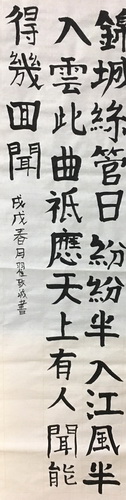 錦城絲管日紛紛半入江風半
入雲此曲祗應天上有人聞能
得幾回聞
戊戌春月翟 城書